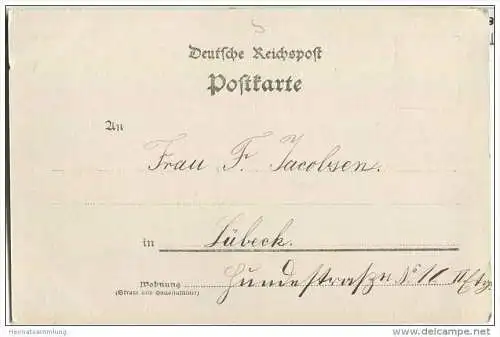 Deutsche Reichspost
Postkarte
An
Frau F. Jacobsen.
in Lübeck.
Wohnung Hundestraße No 10 II Etg.
(Strasse und Hausnummer)
Heimatsammlung
www.delcampe.net